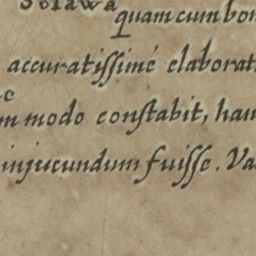 Solawa
quam cum bon
accuratissimè elaborat
m modo constabit, hau
injucundum fuisse. Va